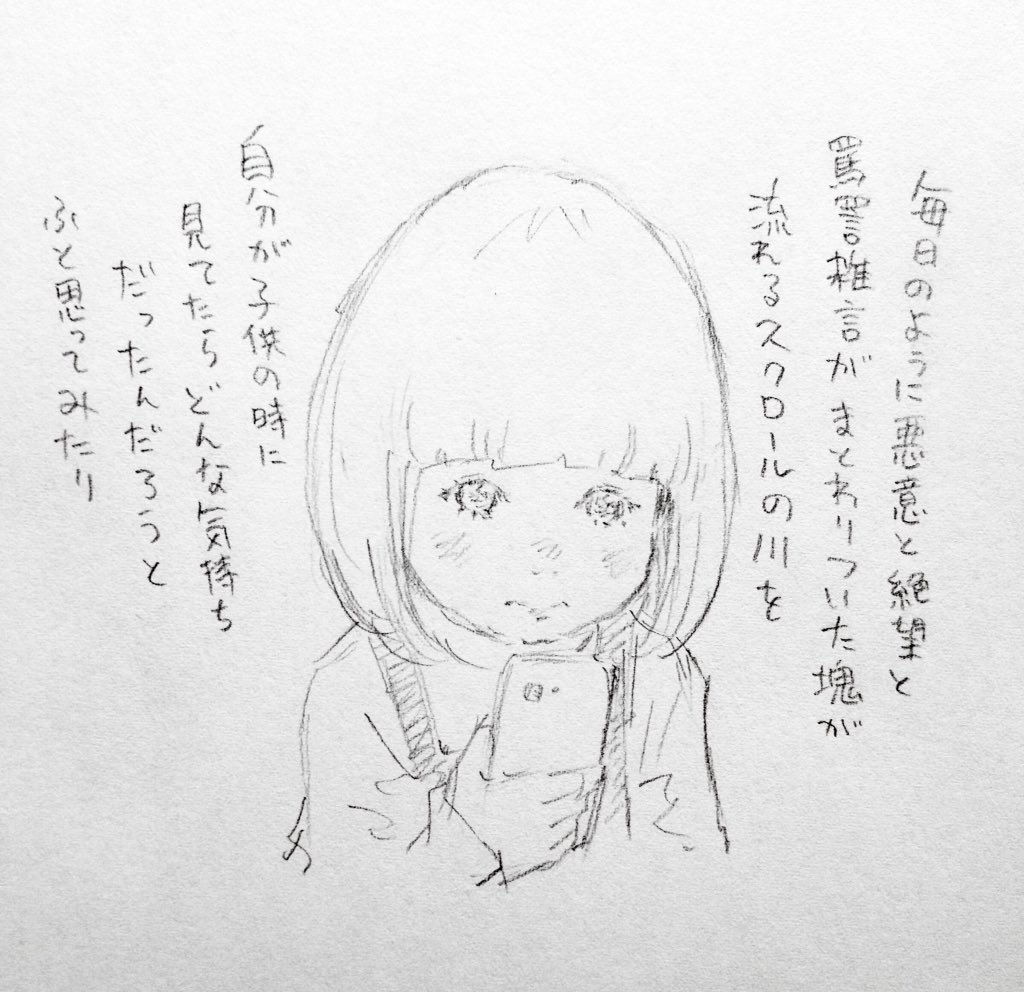 毎日のように悪意と絶望と
罵詈雑言がまとわりついた塊が
流れるスクロールの川を
自分が子供の時に
見てたらどんな気持ち
だったんだろうと
ふと思ってみたり